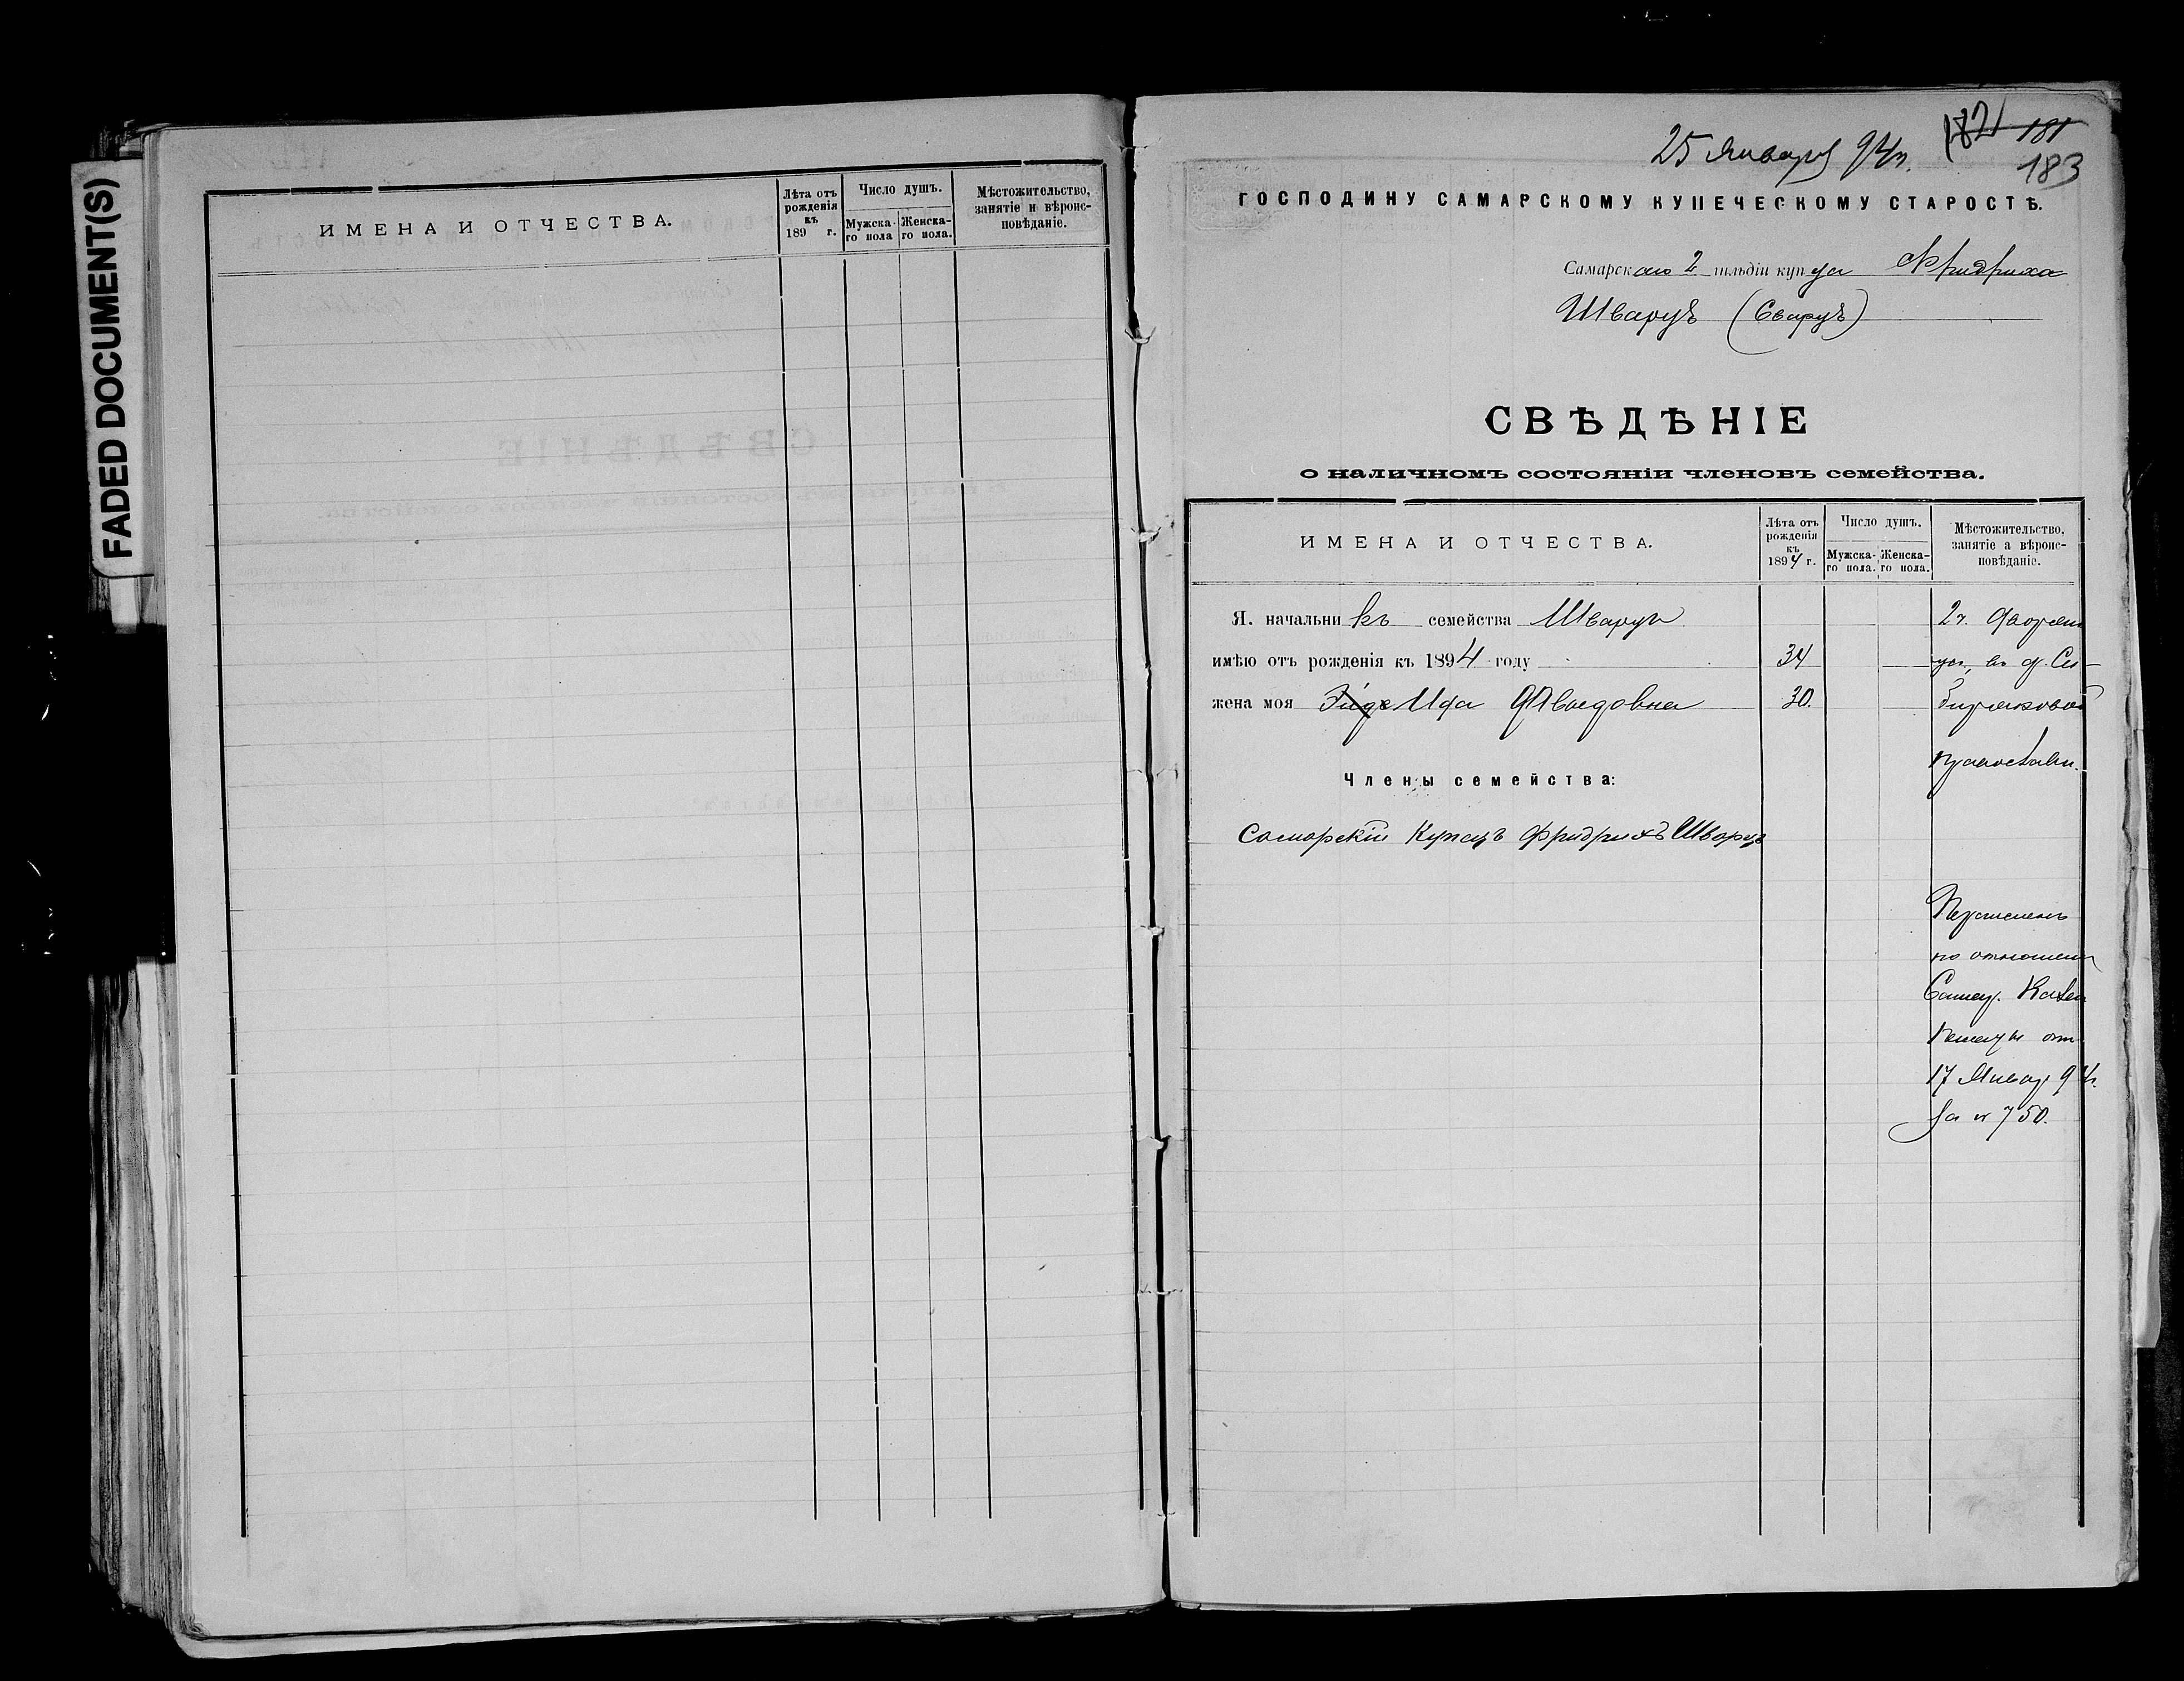 FADED DOCUMENT(S)
ИМЕНА И ОТЧЕСТВА.
Лѣта отъ рожденія къ 189 г.
Число душъ.
Мужска-го пола
Женска-го пола.
Мѣстожительство, занятіе и вѣроис-повѣданіе.
25 Января 94 г.
182 181
183
ГОСПОДИНУ САМАРСКОМУ КУПЕЧЕСКОМУ СТАРОСТѢ.
Самарскаго 2 гильдіи купца Фридриха
Шварцъ (Сварцъ)
СВѢДѢНІЕ
о наличномъ состояніи членовъ семейства.
ИМЕНА И ОТЧЕСТВА.
Лѣта отъ рожденія къ 1894 г.
Число душъ.
Мужска-го пола.
Женска-го пола.
Мѣстожительство, занятіе а вѣроис-повѣданіе.
Я. начальникъ семейства Шварцъ
имѣю отъ рожденія къ 1894 году 34
жена моя Ида 30.
Члены семейства:
Самарскій Купецъ Фридрихъ Шварцъ
2 ч.
православн.
по отношенію
Самар. Казен
Палаты отъ
17 Январ. 94 г.
за № 750.